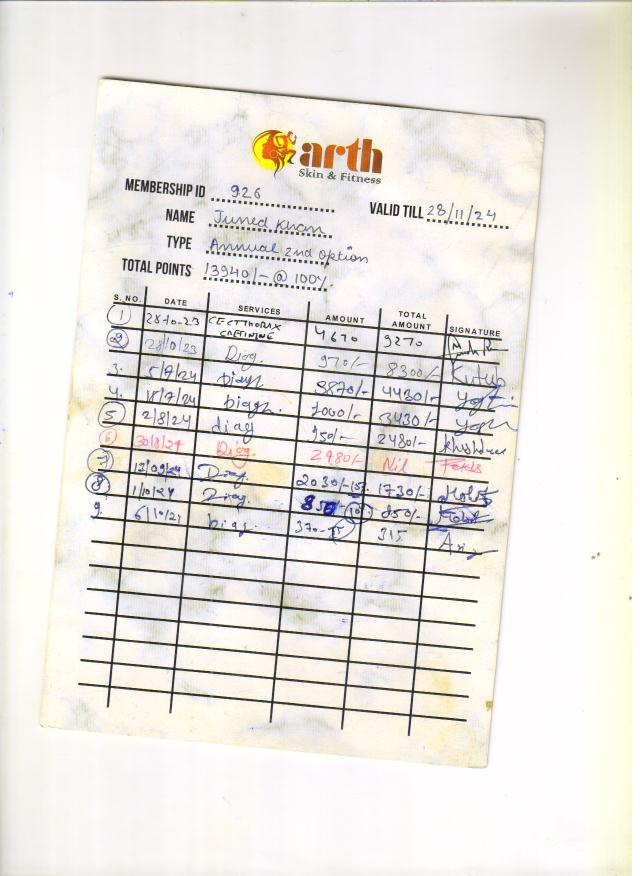 arth
Skin & Fitness
MEMBERSHIP ID 926
VALID TILL 28/11/24
NAME Juned Khan
TYPE Annual 2nd option
TOTAL POINTS 13940/- @ 100%.
S. NO. DATE SERVICES AMOUNT TOTAL AMOUNT SIGNATURE
1 28-10-23 CECTTHORAX 4670 9270
2 28/10/23 Diag. 970/- 8300/- Kutub
3. 5/7/24 Diag. 3870/- 4430/-
4. 15/7/24 Diag. 1000/- 3430/-
5 2/8/24 diag 950/- 2480/-
6 30/8/24 Diag. 2480/- Nil
7 13/09/24 Diag. 2030/- 15% 1730/-
8 1/10/24 Diag. 850 10% 850/-
9. 6/10/24 Diag. 370- 315